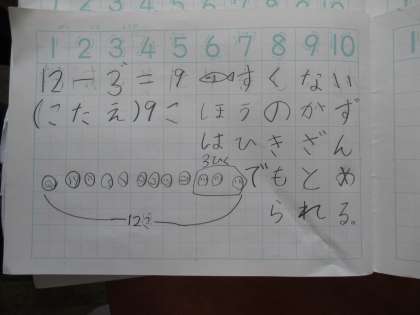 1 2 3 4 5 6 7 8 9 10
12-3=9 すくない
(こたえ)9こ ほうのかず
はひきざん
3ひく
でもとめ
られる。
12こ